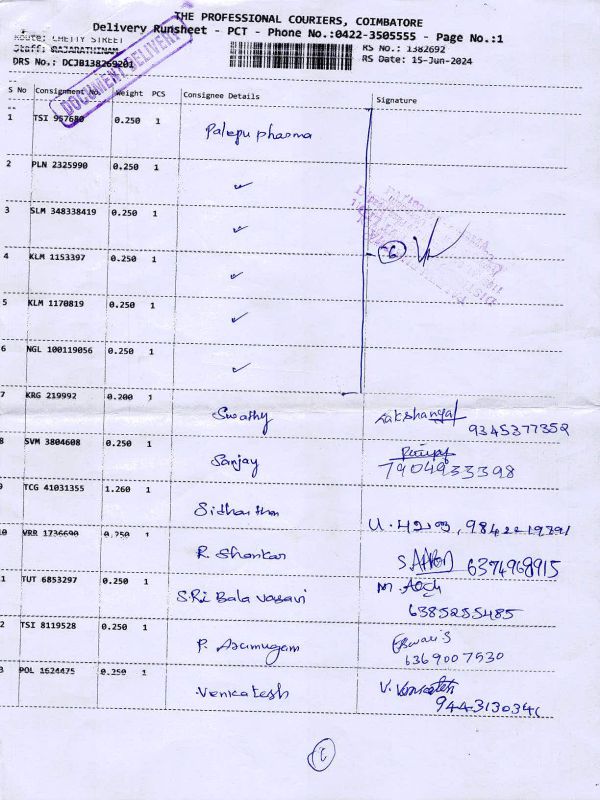 THE PROFESSIONAL COURIERS, COIMBATORE
Delivery Runsheet - PCT - Phone No.:0422-3505555 - Page No.:1
Route: CHETTY STREET
Staff: RAJARATHINAM
RS No.: 1382692
DRS No.: DCJB138269201
RS Date: 15-Jun-2024
DOCUMENT DELIVERY
S No Consignment No. Weight PCS Consignee Details Signature
1 TSI 957680 0.250 1 Palepu pharma
2 PLN 2325990 0.250 1 ✓
3 SLM 348338419 0.250 1 ✓
4 KLM 1153397 0.250 1 ✓ 6
5 KLM 1170819 0.250 1 ✓
6 NGL 100119056 0.250 1 ✓
7 KRG 219992 0.200 1 Swathy 9345377352
8 SVM 3804608 0.250 1 Sanjay
7904933398
9 TCG 41031355 1.260 1 Sidharthan
0 VRR 1736690 0.250 1 R. Shankar 6374968915
1 TUT 6853297 0.250 1 SRi Bala vasavi
6385255485
2 TSI 8119528 0.250 1 P. Arumugam
6369007530
3 POL 1624475 0.250 1 Venkatesh V. Venkatesh